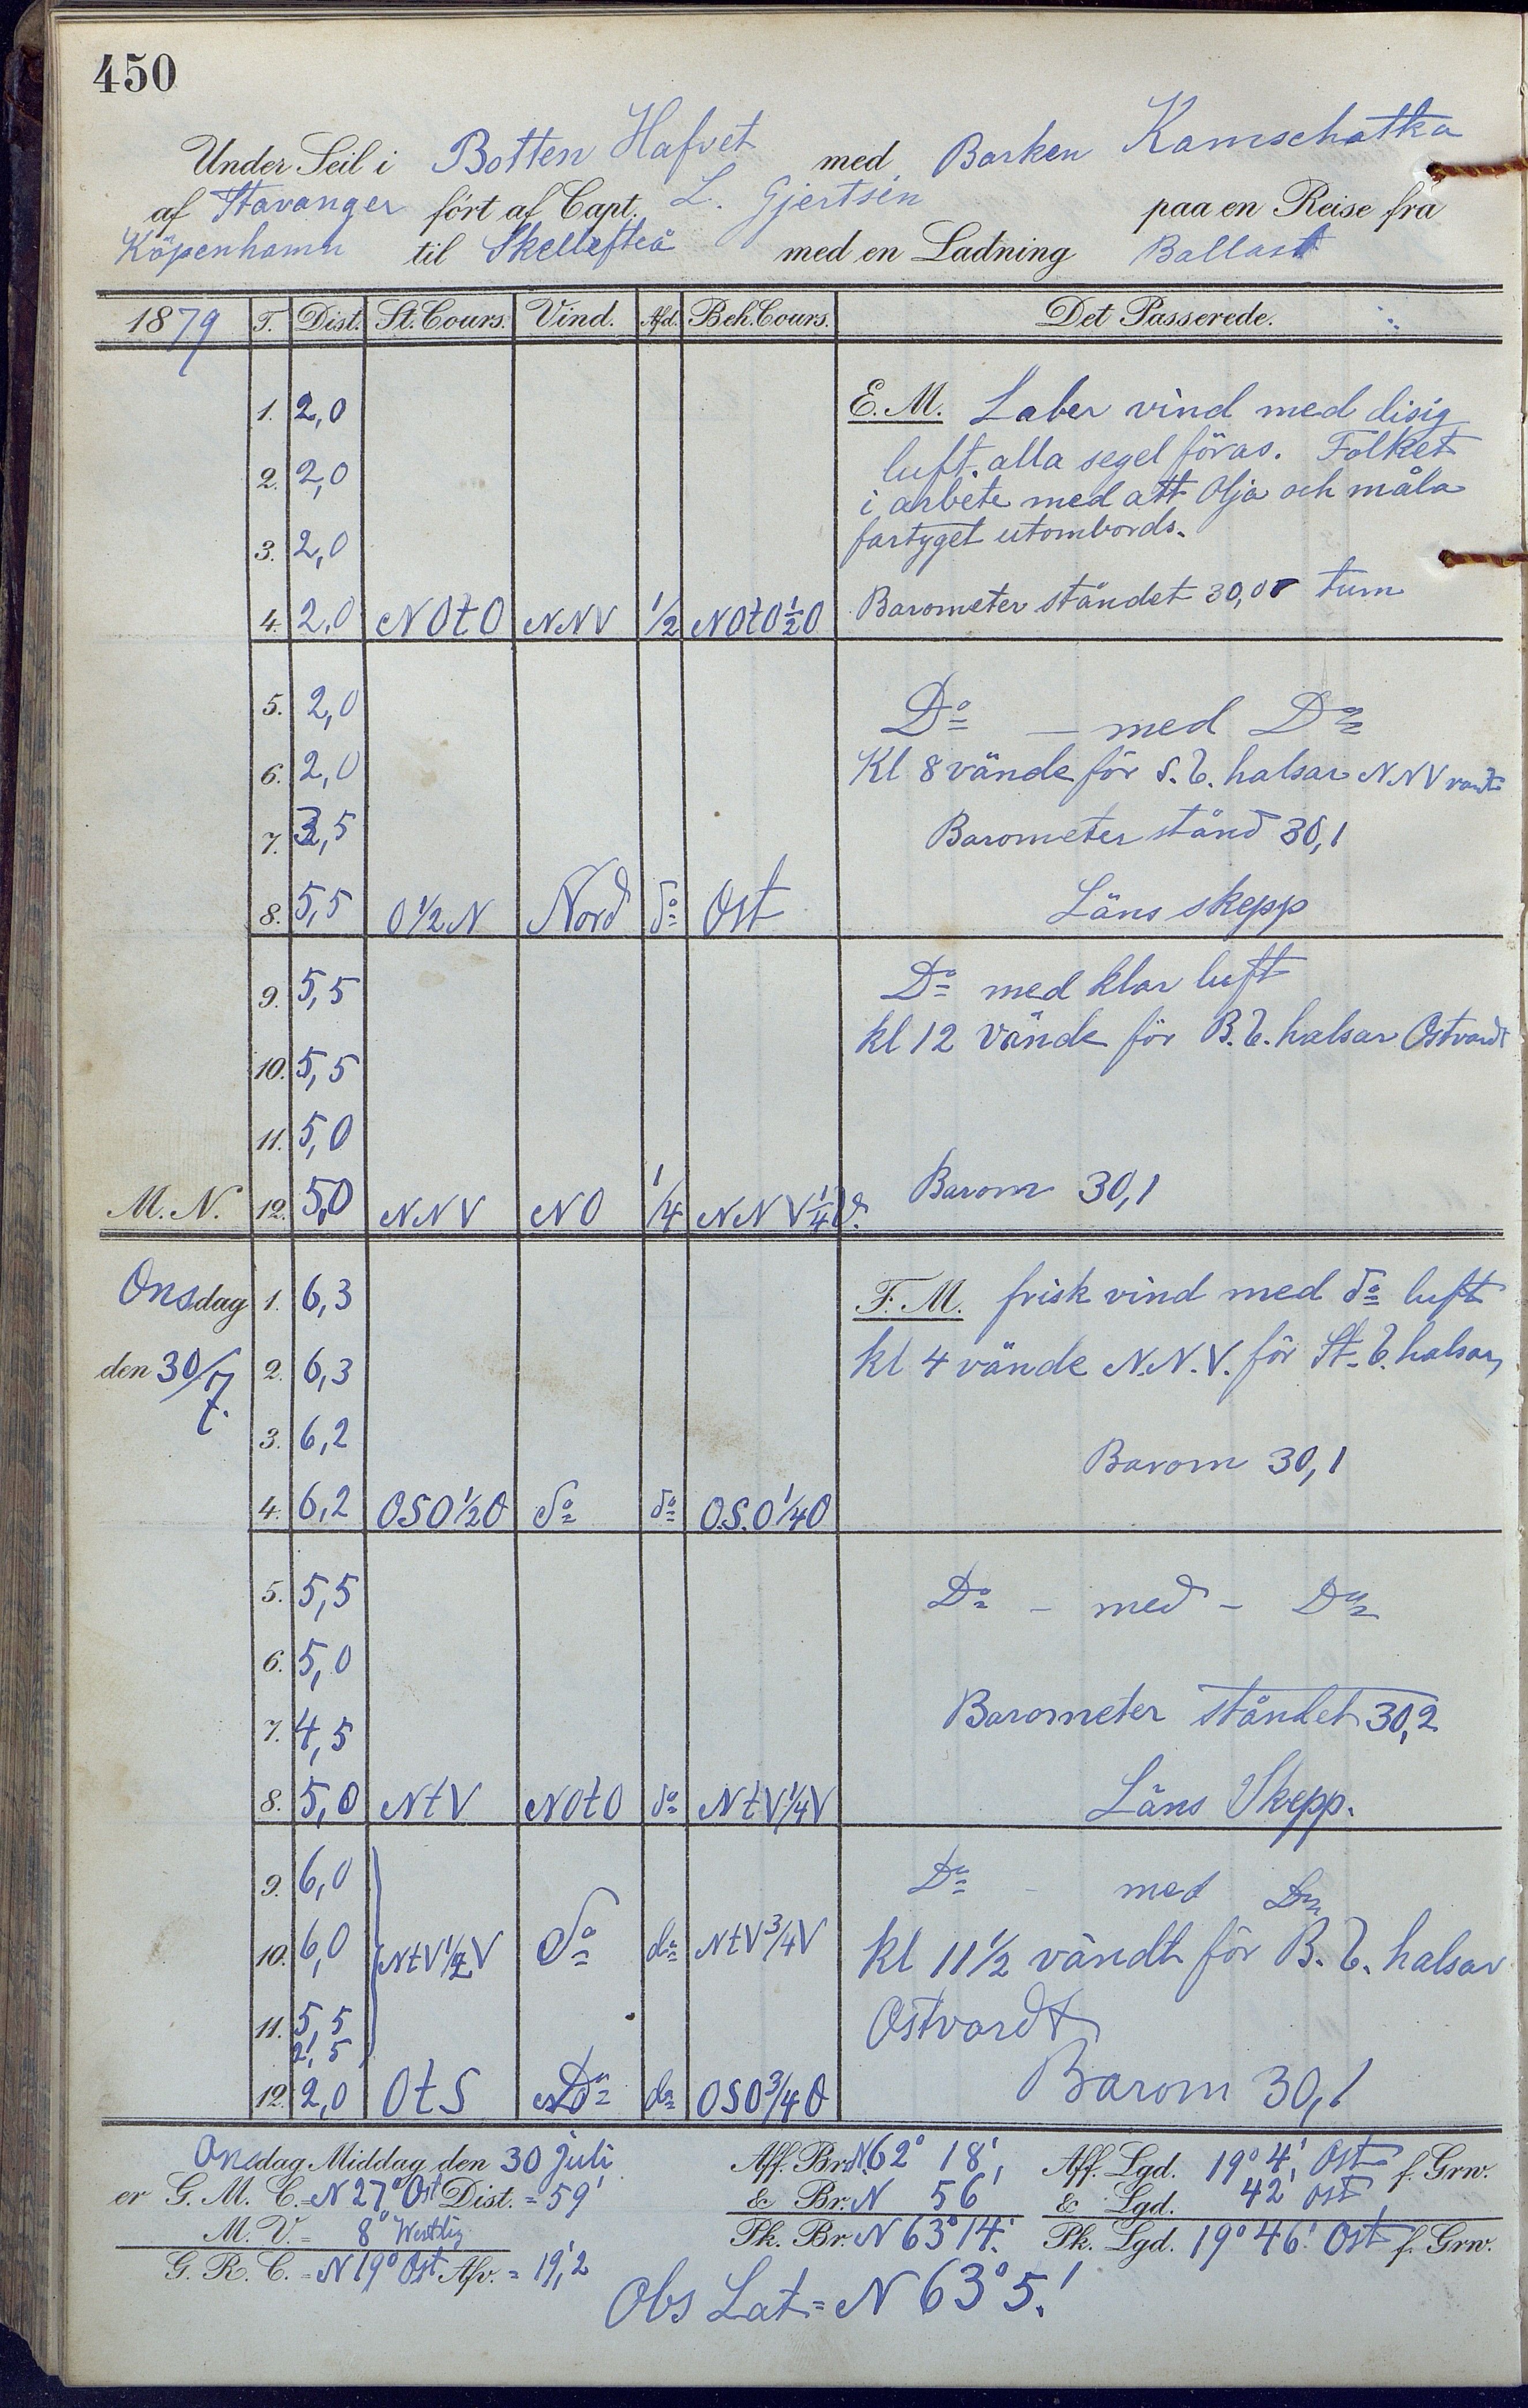 450
Under Seil i Botten Hafvet med Barken Kamschatka
af Stavanger fört af Capt. L. Gjertsen paa en Reise fra
Köpenhamn til Skellefteå med en Ladning Ballast
1879 T. Dist. St. Cours. Vind. Afd. Beh. Cours. Det Passerede.
1. 2,0 E. M. Laber vind med disig
luft. alla segel föras. Folket
2. 2,0 i arbete med att Olja och måla
3. 2,0 fartyget utombords.
4. 2,0 NOtO NNV 1/2 NOtO 1/2 O Barometer ståndet 30,0 tum
5. 2,0 Do — med Do
6. 2,0 Kl 8 vände för S. B. halsar NNV vardt
7. 3,5 Barometer stånd 30,1
8. 5,5 O 1/2 N Nord do Ost Läns skepp
9. 5,5 Do med klar luft
kl 12 vände för B. B. halsar Ostvardt
10. 5,5
11. 5,0
M. N. 12. 5,0 NNV NO 1/4 NNV 1/4 V. Barom 30,1
Onsdag 1. 6,3 F. M. frisk vind med do luft
den 30/7. 2. 6,3 kl 4 vände N.N.V. för St. B. halsar,
3. 6,2 Barom 30,1
4. 6,2 OSO 1/2 O do do O.S.O 1/4 O
5. 5,5 Do - med - Do
6. 5,0
7. 4,5 Barometer ståndet 30,2
8. 5,0 NtV NOtO do NtV 1/4 V Läns Skepp.
9. 6,0 Do - med Do
10. 6,0 NtV 1/2 V do do NtV 3/4 V kl 11 1/2 vändt för B. B. halsar
11. 5,5 Ostvardt
2,5
12. 2,0 OtS Do do OSO 3/4 O Barom 30,1
Onsdag Middag den 30 juli Aff. Br. N. 62° 18' Aff. Lgd. 19° 4' Ost f. Grw.
er G. M. C. = N 27° Ost Dist. = 59' & Br. N 56' & Lgd. 42' ost
M. V. = 8° Westlig Pk. Br. N 63° 14' Pk. Lgd. 19° 46' Ost f. Grw.
G. R. C. = N 19° Ost Afv. = 19,'2
Obs Lat = N 63° 5.'